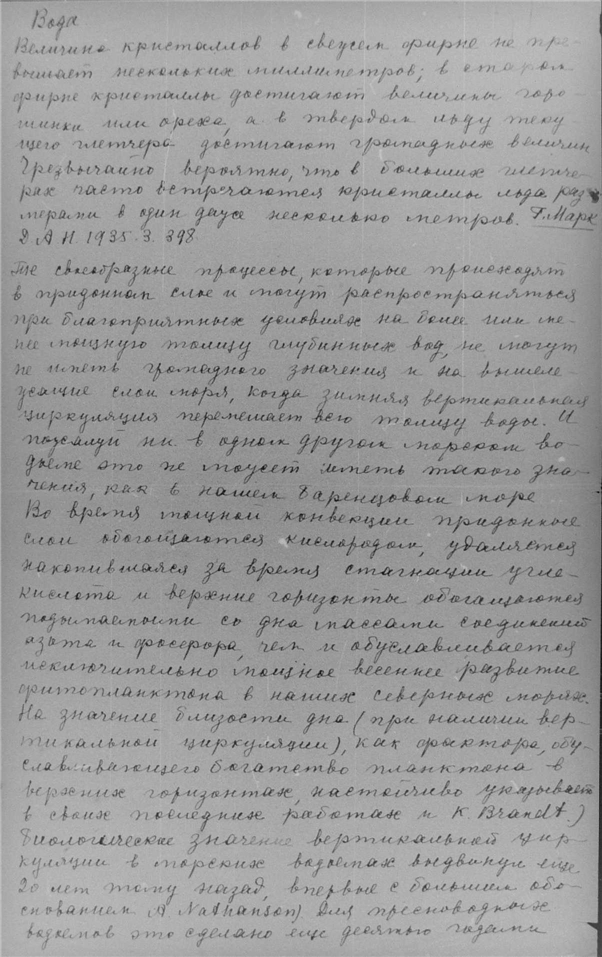 Вода
Величина кристаллов в свежем фирне не пре-
вышает нескольких миллиметров; в старом
фирне кристаллы достигают величины горо-
шинки или ореха, а в твердом льду теку-
щего глетчера достигают громадных величин
Чрезвычайно вероятно, что в больших глетче-
рах часто встречаются кристаллы льда раз-
мерами в один даже несколько метров. Г. Марк
Д.А.Н. 1935. 3. 398.
Те своеобразные процессы, которые происходят
в придонном слое и могут распространяться
при благоприятных условиях на более или ме-
нее мощную толщу глубинных вод, не могут
не иметь громадного значения и на вышеле-
жащие слои моря, когда зимняя вертикальная
циркуляция перемешает всю толщу воды. И
пожалуй ни в одном другом морском во-
доеме это не может иметь такого зна-
чения, как в нашем Баренцовом море
Во время мощной конвекции придонные
слои обогащаются кислородом, удаляется
накопившаяся за время стагнации угле-
кислота и верхние горизонты обогащаются
подымаемыми со дна массами соединений
азота и фосфора, чем и обуславливается
исключительно мощное весеннее развитие
фитопланктона в наших северных морях.
На значение близости дна (при наличии вер-
тикальной циркуляции), как фактора, обу-
славливающего богатство планктона в
верхних горизонтах, настойчиво указывает
в своих последних работах и K. Brandt.)
Биологическое значение вертикальной цир-
куляции в морских водоемах выдвинул еще
20 лет тому назад, впервые с большим обо-
снованием A. Nathanson) Для пресноводных
водоемов это сделано еще десятью годами